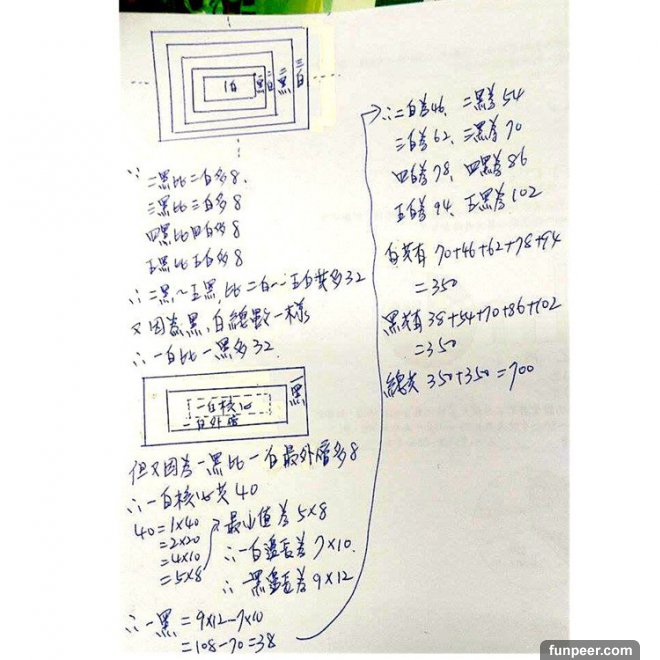 1白 一黑 二白 二黑 三白
∵ 二黑比二白多8.
三黑比三白多8
四黑比四白多8
五黑比五白多8
∴ 二黑~五黑,比二白~五白共多32
又因為黑,白總數一樣
∴ 一白比一黑多32.
一黑
一白核心
一白外層
但又因為一黑比一白最外層多8
∴ 一白核心共40
40=1×40
=2×20
=4×10
=5×8
最小值為5×8
∴ 一白邊長為7×10.
∴ 黑邊長為9×12
∴ 一黑 = 9×12-7×10
=108-70=38
∴ 二白為46, 二黑為54
三白為62, 三黑為70
四白為78, 四黑為86
五白為94, 五黑為102
白共有 70+46+62+78+94
=350
黑共有 38+54+70+86+102
=350
總共 350+350=700
funpeer.com